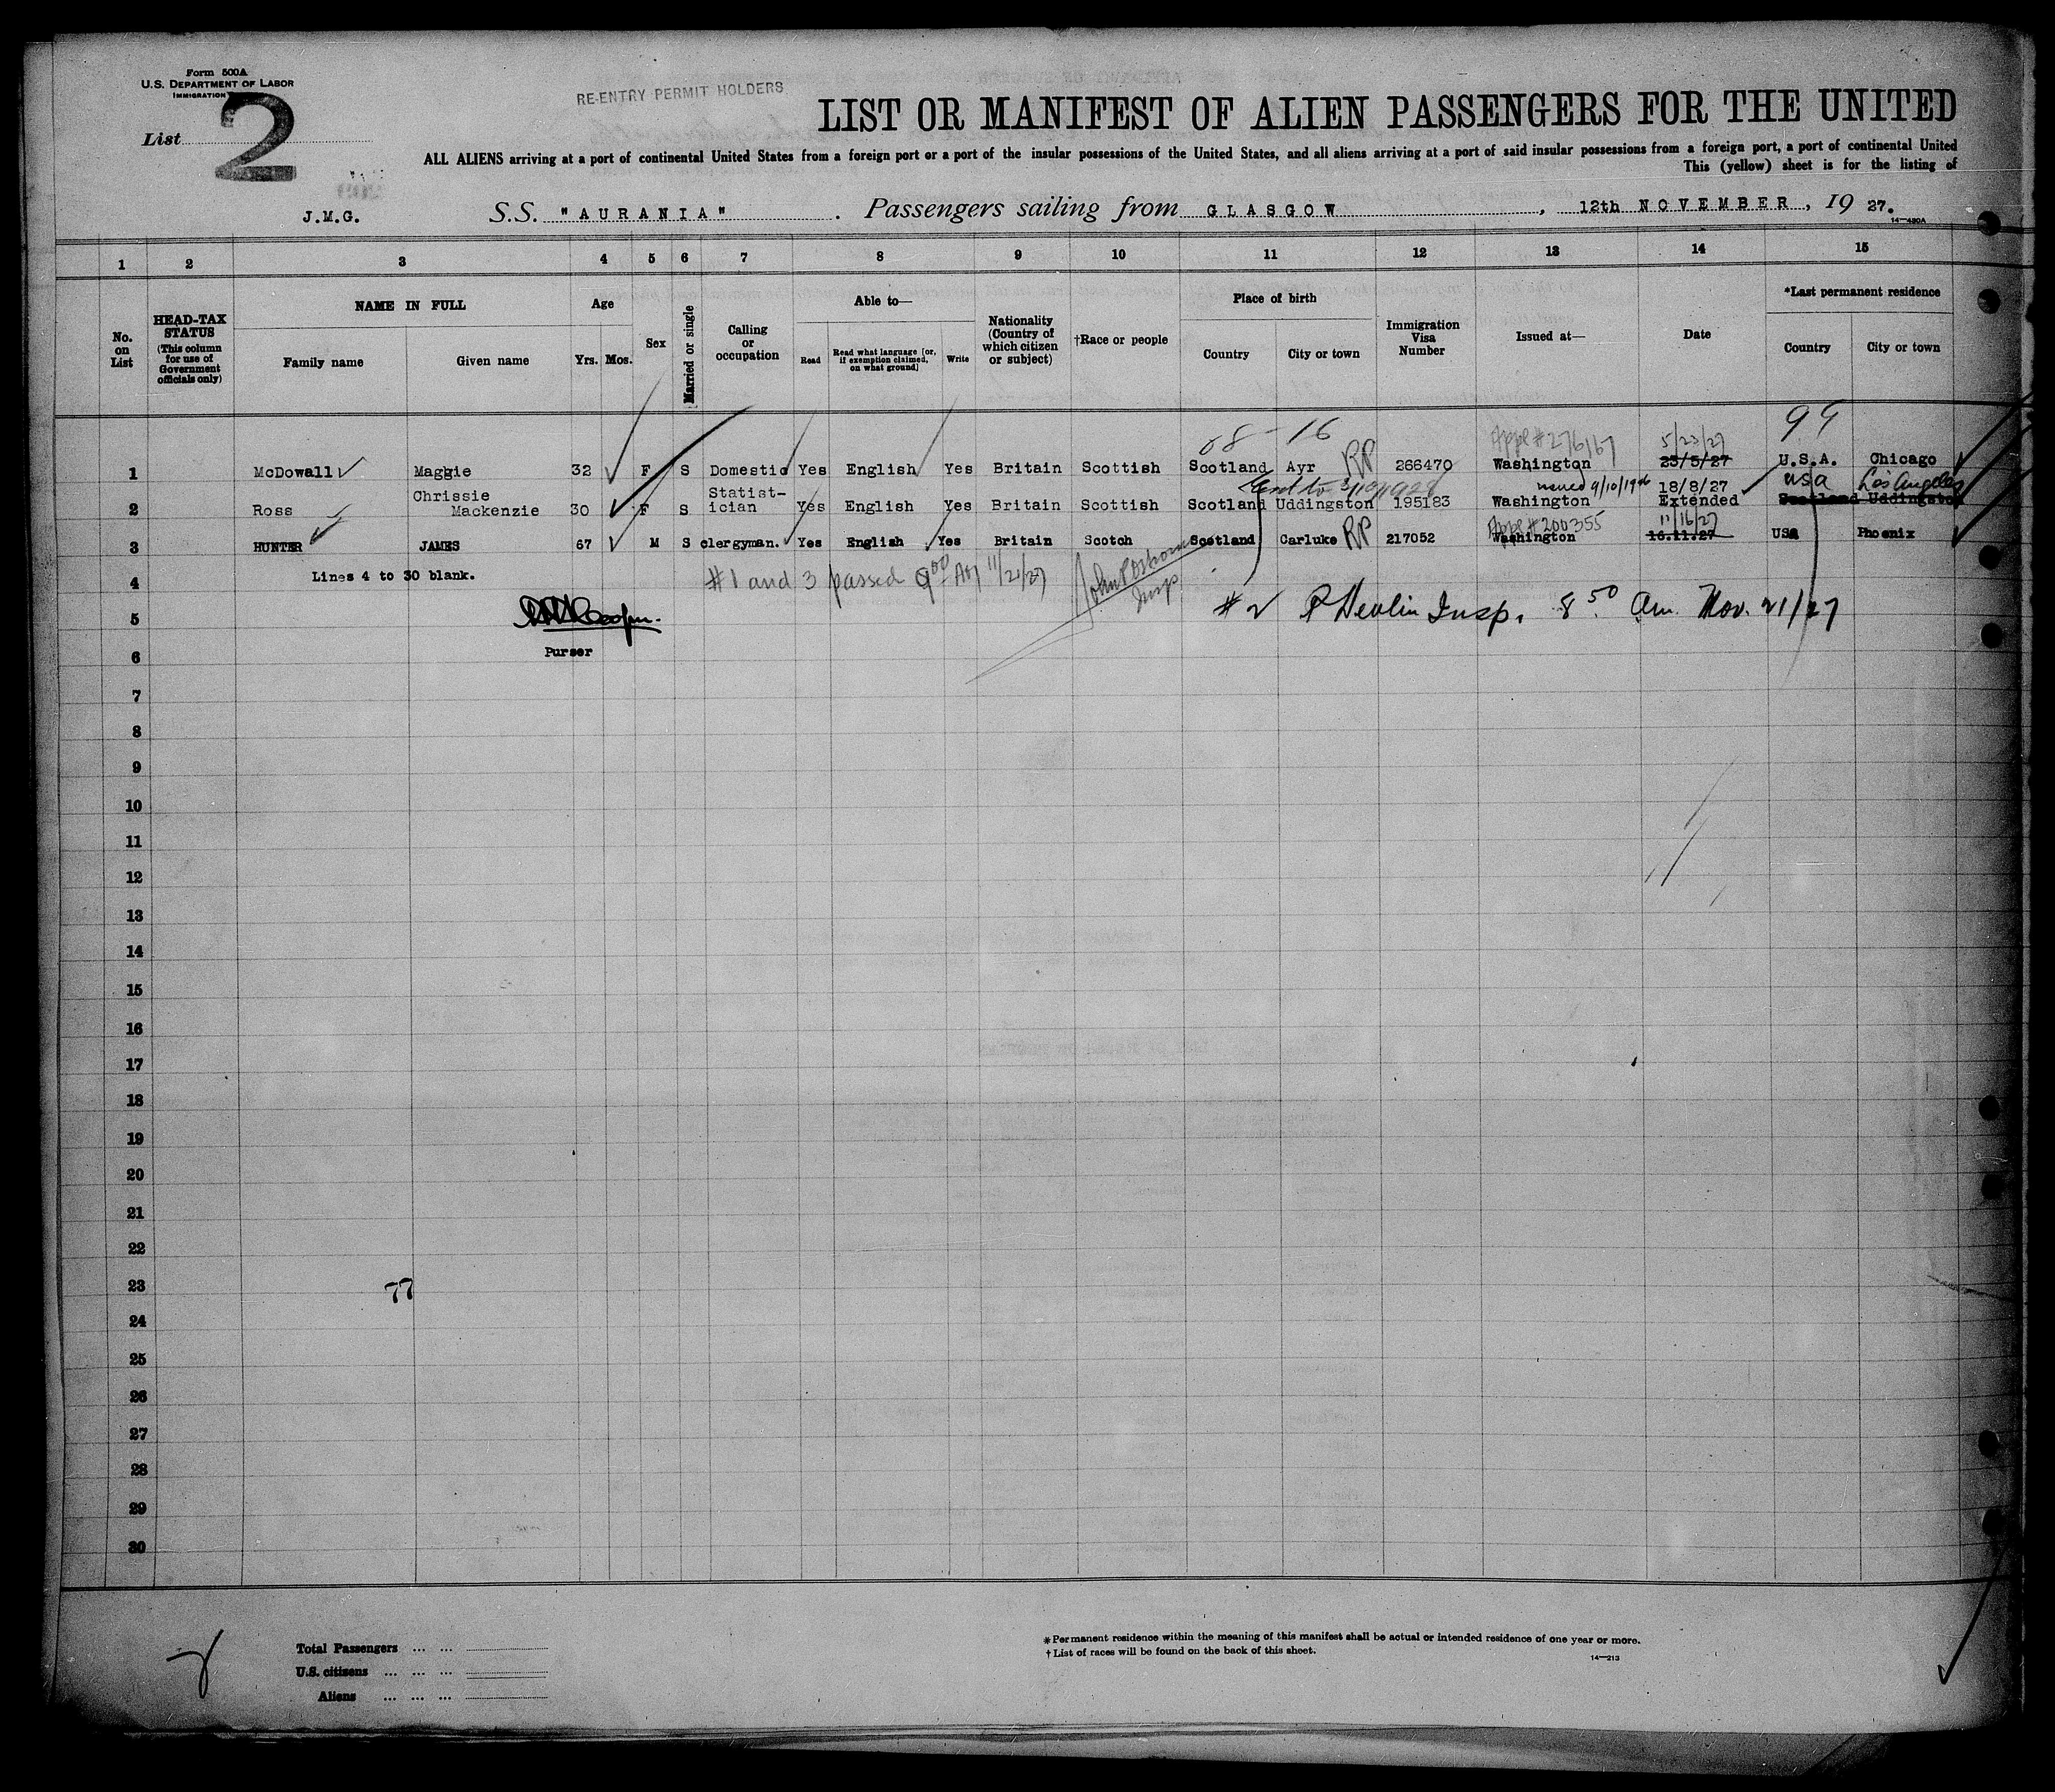 Form 500A
U.S. DEPARTMENT OF LABOR
IMMIGRATION
RE-ENTRY PERMIT HOLDERS
List 2
LIST OR MANIFEST OF ALIEN PASSENGERS FOR THE UNITED
ALL ALIENS arriving at a port of continental United States from a foreign port or a port of the insular possessions of the United States, and all aliens arriving at a port of said insular possessions from a foreign port, a port of continental United
This (yellow) sheet is for the listing of
J.M.G. S.S. "AURANIA" . Passengers sailing from GLASGOW , 12th NOVEMBER , 19 27.
14-430A
1 2 3 4 5 6 7 8 9 10 11 12 13 14 15
No. on List
HEAD-TAX STATUS (This column for use of Government officials only)
NAME IN FULL
Family name Given name
Age
Yrs. Mos.
Sex
Married or single
Calling or occupation
Able to—
Read Read what language [or, if exemption claimed, on what ground] Write
Nationality (Country of which citizen or subject)
†Race or people
Place of birth
Country City or town
Immigration Visa Number
Issued at—
Date
*Last permanent residence
Country City or town
08-16 Appl # 276167 5/23/27 94
1 McDowall Maggie 32 F S Domestic Yes English Yes Britain Scottish Scotland Ayr RP 266470 Washington 23/5/27 U.S.A. Chicago
issued 9/10/1926 USA Los Angeles
2 Ross Chrissie Mackenzie 30 F S Statistician Yes English Yes Britain Scottish Scotland Uddingston 195183 Washington 18/8/27 Extended Scotland Uddingston
Appl # 200355 11/16/27
3 HUNTER JAMES 67 M S clergyman. Yes English Yes Britain Scotch Scotland Carluke RP 217052 Washington 16.11.27 USA Phoenix
4 Lines 4 to 30 blank. #1 and 3 passed 9:00 AM 11/21/27 John P Osborne Insp
5 #2 P Devlin Insp. 8 50 Am. Nov. 21/27
6 Purser
7
8
9
10
11
12
13
14
15
16
17
18
19
20
21
22
23 77
24
25
26
27
28
29
30
Total Passengers ... ...
U.S. citizens ... ... ...
Aliens ... ... ...
*Permanent residence within the meaning of this manifest shall be actual or intended residence of one year or more.
†List of races will be found on the back of this sheet.
14-213